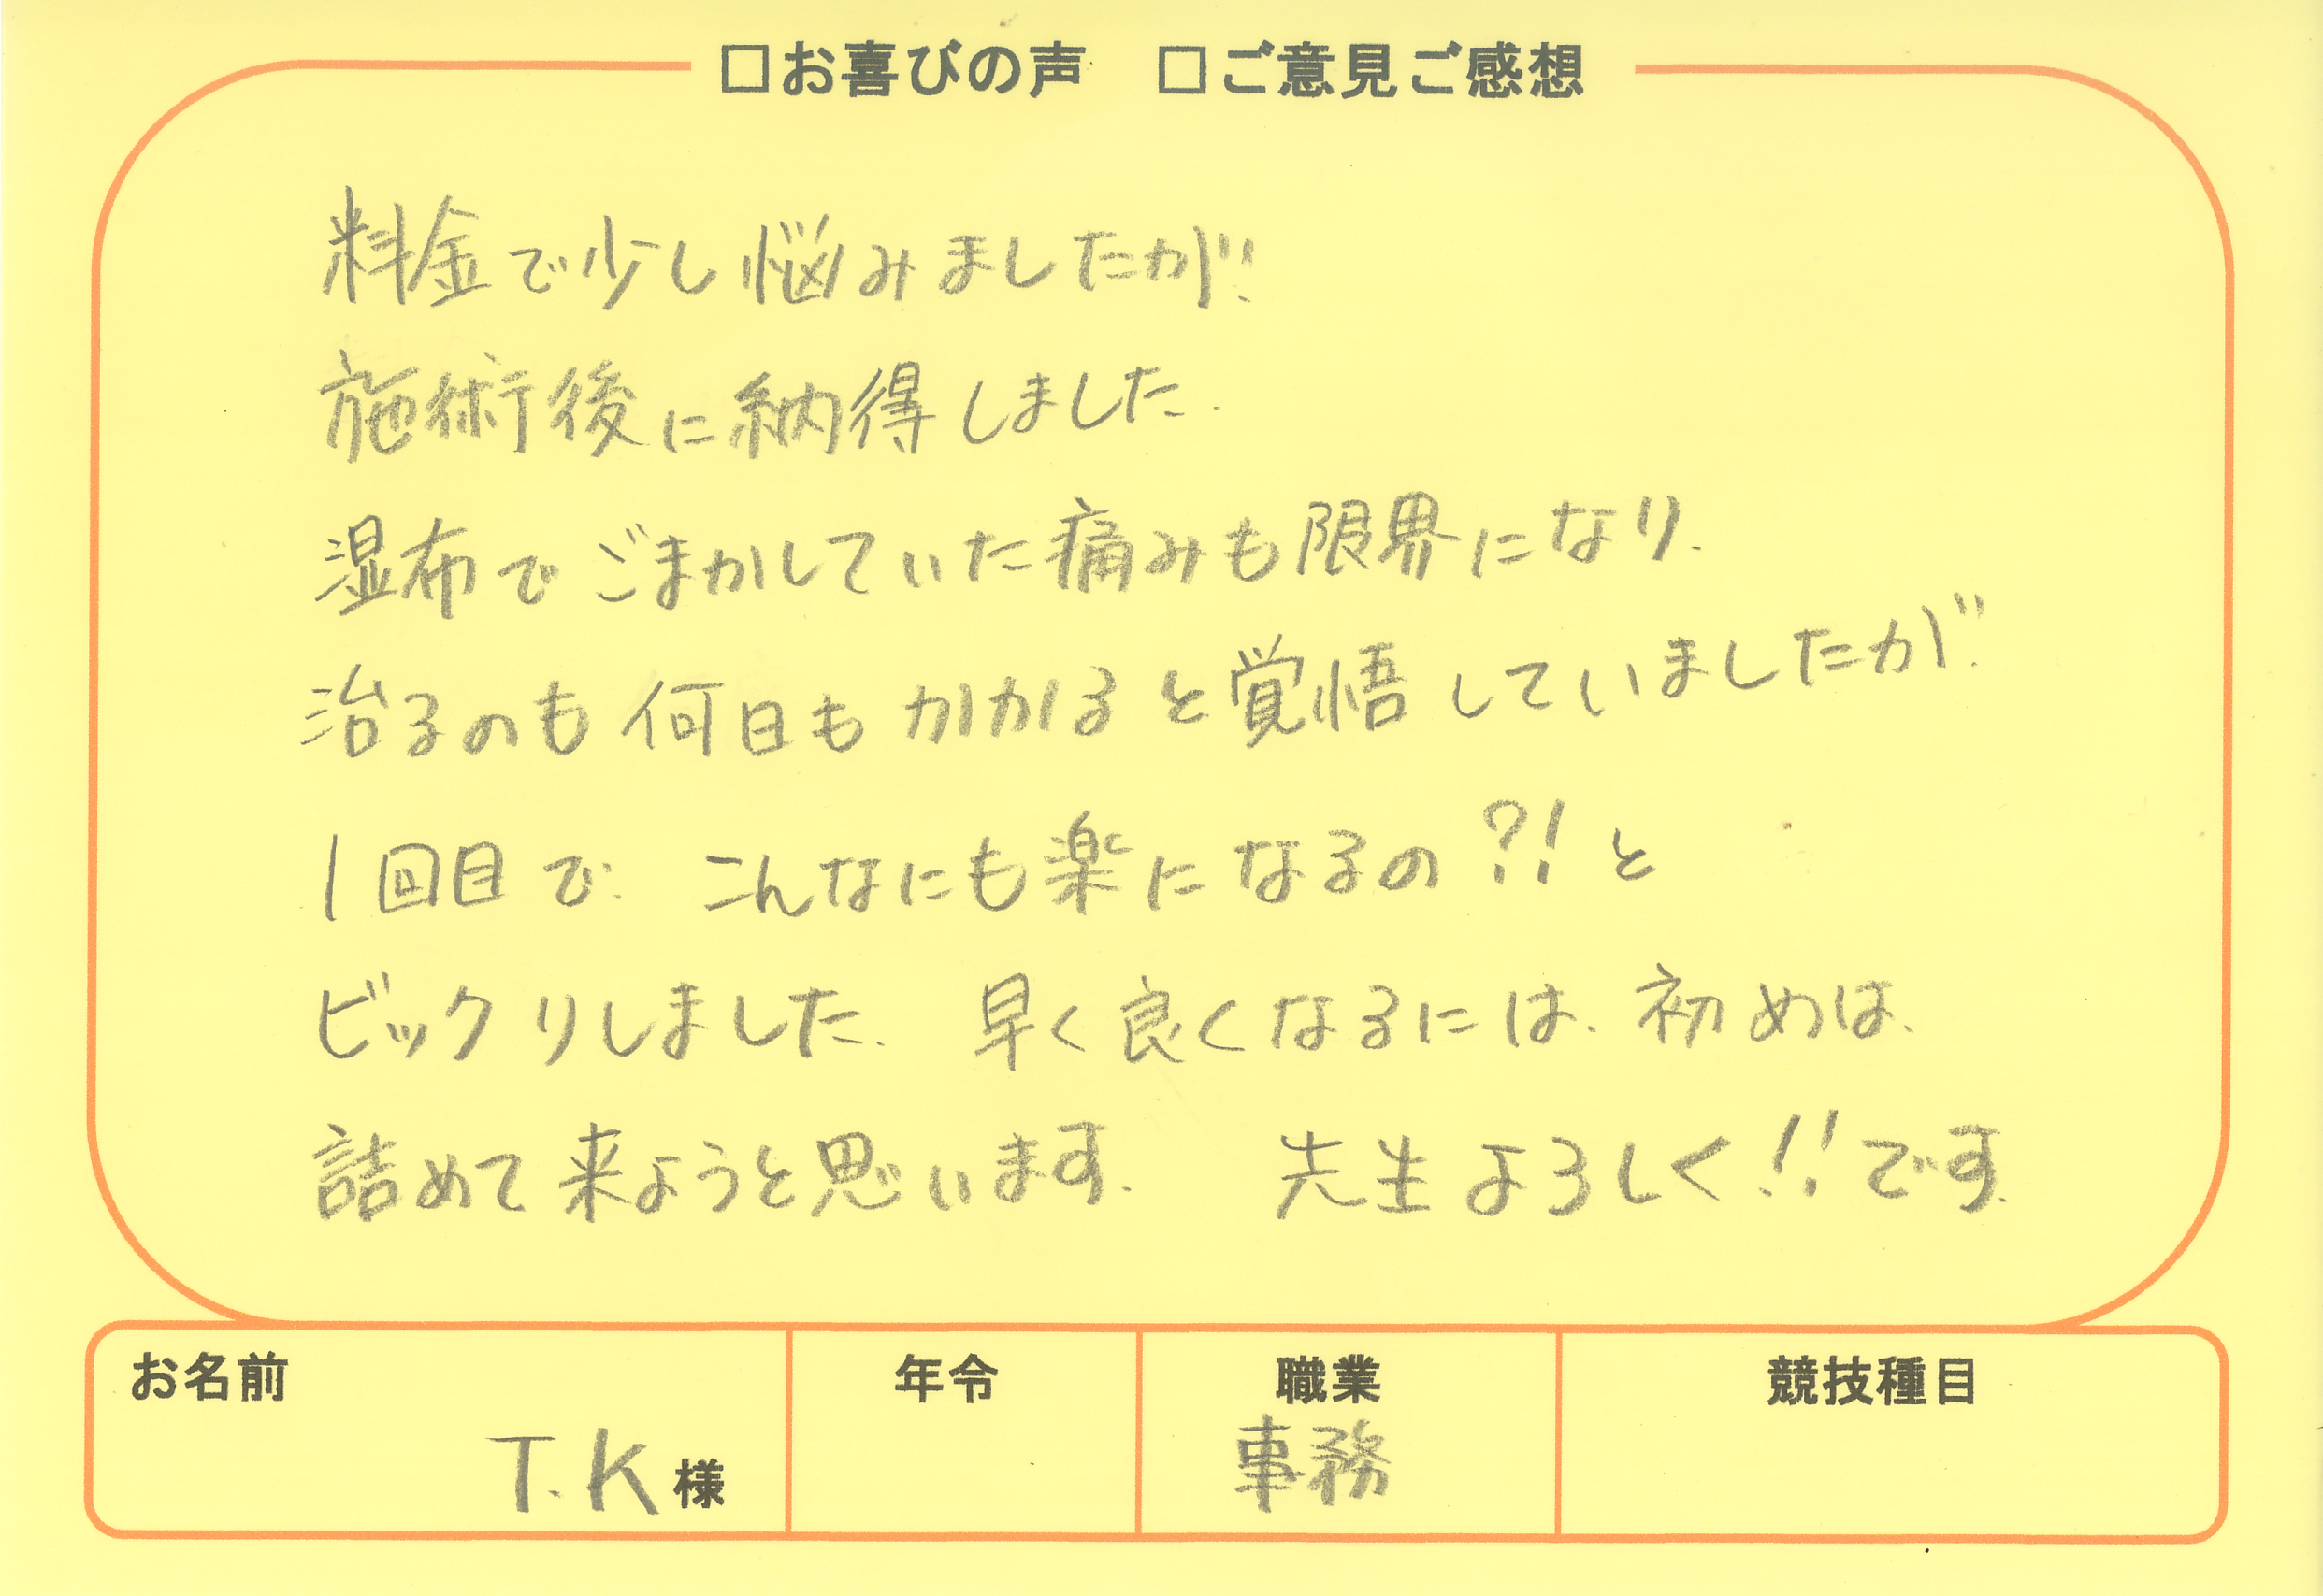 □お喜びの声　□ご意見ご感想
料金で少し悩みましたが、
施術後に納得しました。
湿布でごまかしていた痛みも限界になり、
治るのも何日もかかると覚悟していましたが、
1回目で、こんなにも楽になるの?!と
ビックリしました。早く良くなるには、初めは、
詰めて来ようと思います。　先生よろしく!!です。
お名前　年令　職業　競技種目
T.K様　事務